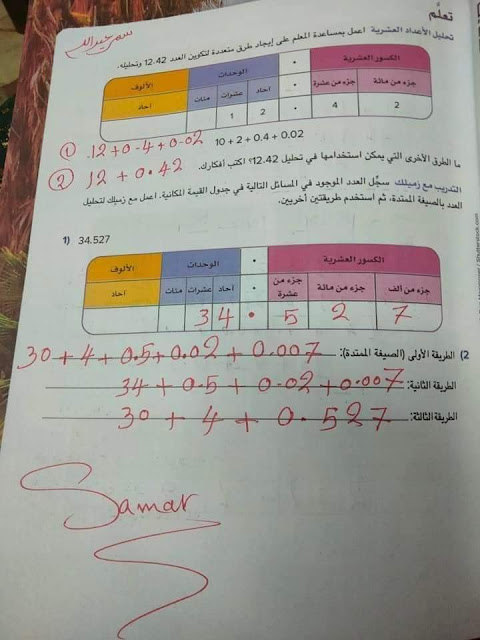 تعلَّم
سمر عبدالله
تحليل الأعداد العشرية اعمل بمساعدة المعلم على إيجاد طرق متعددة لتكوين العدد 12.42 وتحليله.
الألوف الوحدات • الكسور العشرية
آحاد مئات عشرات آحاد • جزء من عشرة جزء من مائة
1 2 • 4 2
10 + 2 + 0.4 + 0.02
① 12 + 0.4 + 0.02
ما الطرق الأخرى التي يمكن استخدامها في تحليل 12.42؟ اكتب أفكارك.
② 12 + 0.42
التدريب مع زميلك سجِّل العدد الموجود في المسائل التالية في جدول القيمة المكانية. اعمل مع زميلك لتحليل
العدد بالصيغة الممتدة، ثم استخدم طريقتين أخريين.
1) 34.527
الألوف الوحدات • الكسور العشرية
آحاد مئات عشرات آحاد • جزء من عشرة جزء من مائة جزء من ألف
3 4 • 5 2 7
2) الطريقة الأولى (الصيغة الممتدة): 30 + 4 + 0.5 + 0.02 + 0.007
الطريقة الثانية: 34 + 0.5 + 0.02 + 0.007
الطريقة الثالثة: 30 + 4 + 0.527
Samar